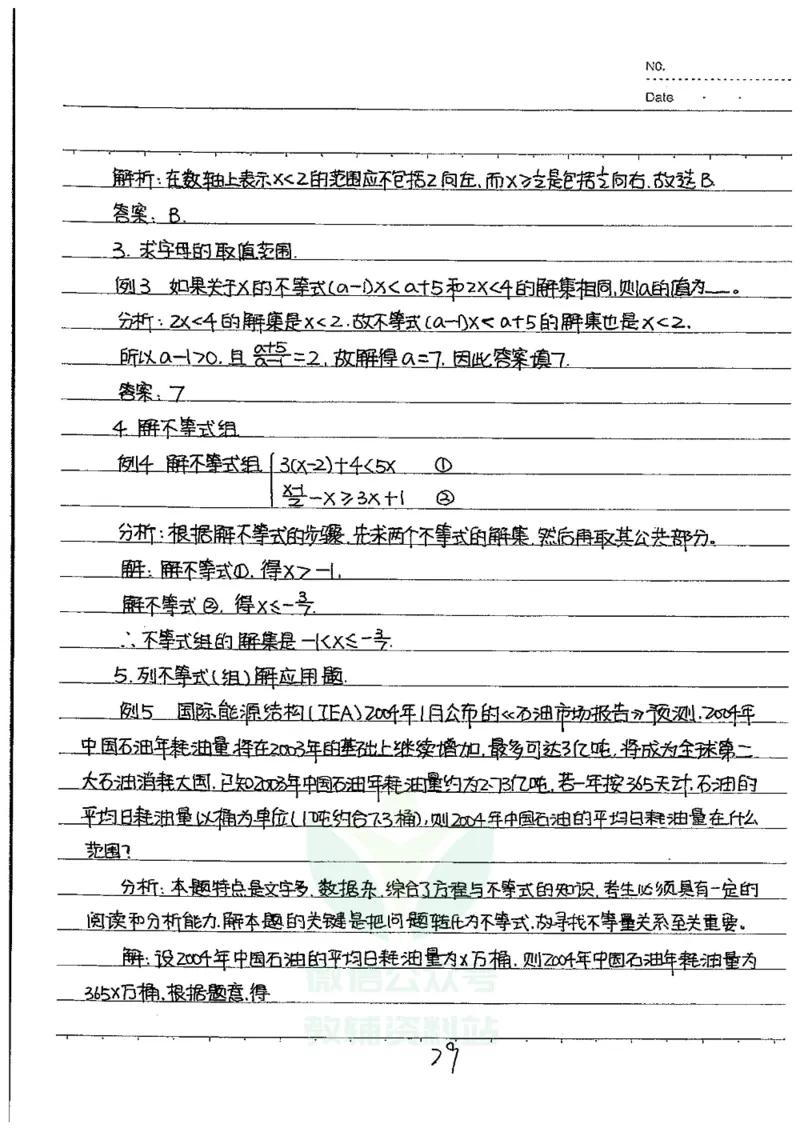 NO.
Date
解析:在数轴上表示x<2的范围应不包括2向左,而x≥1/2是包括1/2向右.故选B.
答案:B.
3. 求字母的取值范围.
例3 如果关于x的不等式(a-1)x<a+5和2x<4的解集相同,则a的值为__。
分析:2x<4的解集是x<2.故不等式(a-1)x<a+5的解集也是x<2.
所以a-1>0.且(a+5)/(a-1)=2,故解得a=7.因此答案填7.
答案:7
4 解不等式组
例4 解不等式组 3(x-2)+4<5x ①
(x-1)/2-x≥3x+1 ②
分析:根据解不等式的步骤,先求两个不等式的解集,然后再取其公共部分。
解:解不等式①,得x>-1,
解不等式②,得x≤-3/7.
∴不等式组的解集是-1<x≤-3/7.
5.列不等式(组)解应用题.
例5 国际能源结构(IEA)2004年1月公布的《石油市场报告》预测.2004年
中国石油年耗油量将在2003年的基础上继续增加,最多可达3亿吨,将成为全球第二
大石油消耗大国,已知2003年中国石油年耗油量约为2.73亿吨,若一年按365天计,石油的
平均日耗油量以桶为单位(1吨约合7.3桶),则2004年中国石油的平均日耗油量在什么
范围?
分析:本题特点是文字多,数据杂,综合了方程与不等式的知识,考生必须具有一定的
阅读和分析能力.解本题的关键是把问题转化为不等式,故寻找不等量关系至关重要。
解:设2004年中国石油的平均日耗油量为x万桶,则2004年中国石油年耗油量为
365x万桶,根据题意,得
微信公众号
教辅资料站
29